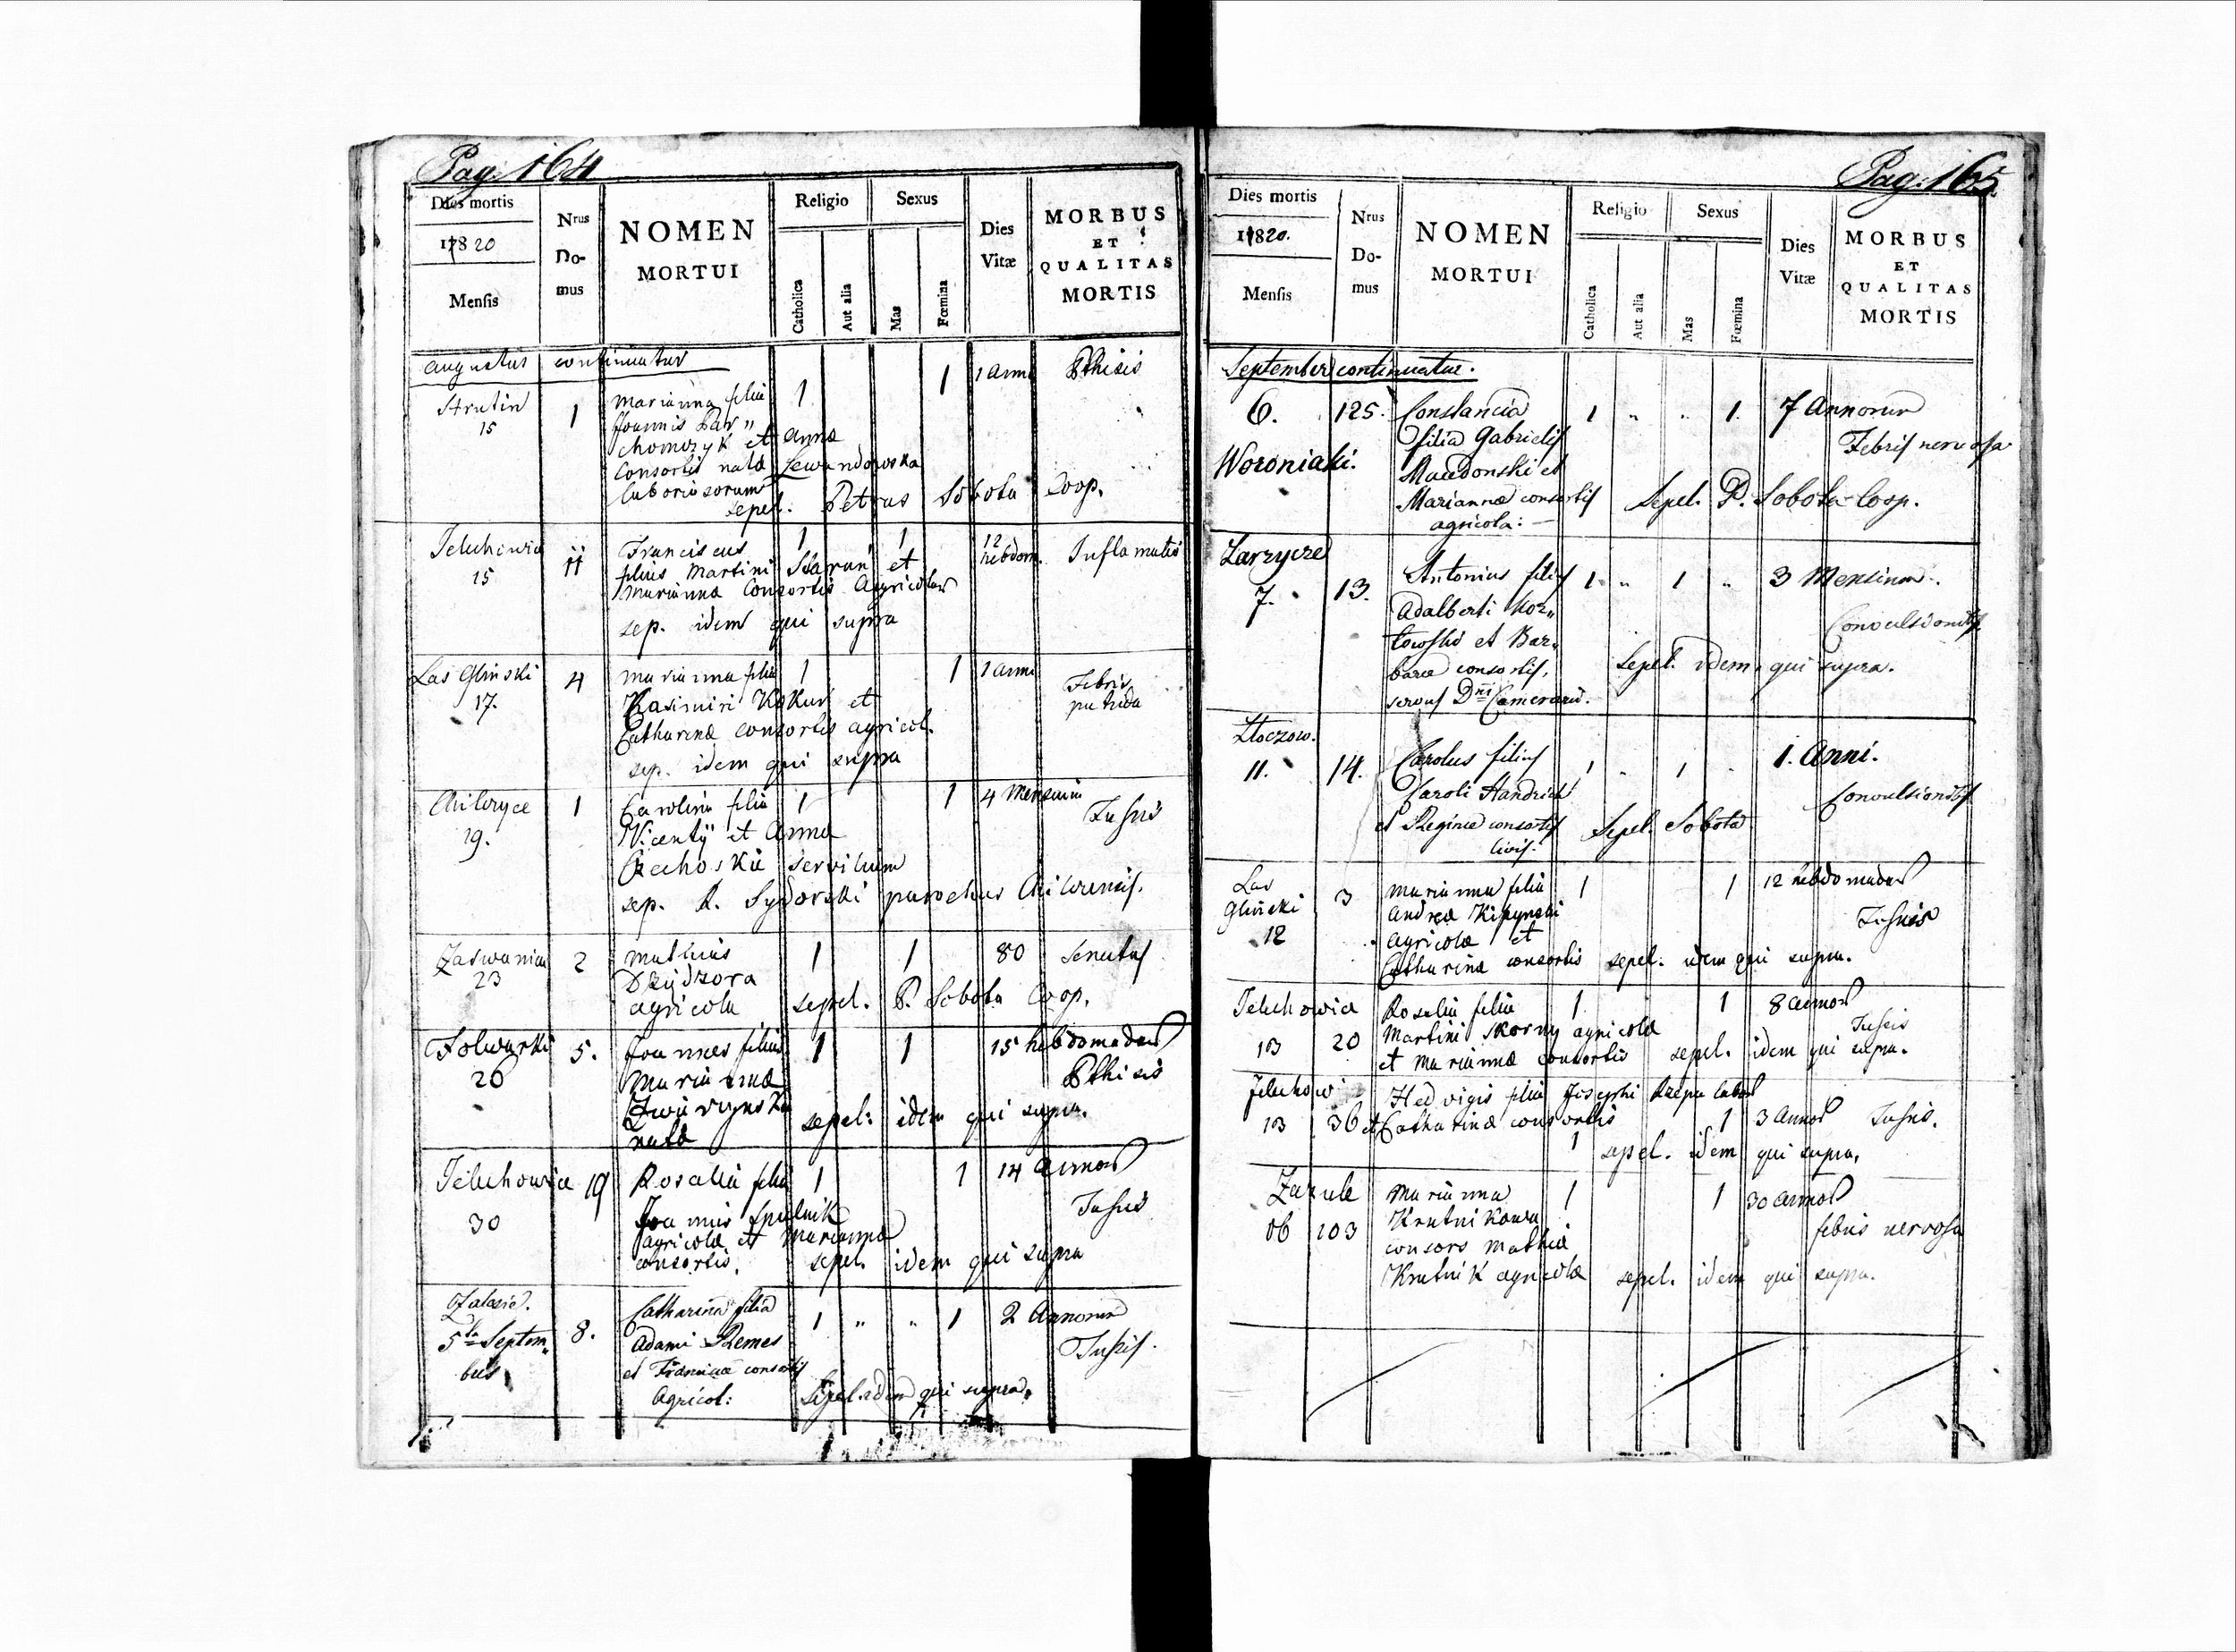 Pag. 164
Dies mortis
1820
Mensis
Nrus
Do-
mus
NOMEN
MORTUI
Religio
Catholica
Aut alia
Sexus
Mas
Fœmina
Dies
Vitæ
MORBUS
ET
QUALITAS
MORTIS
Augustus continuatur
Strutin 1 Marianna filia 1 1 1 Anni Pthisis
15 Joannis Par„
chomczyk et Anna
Consortis nata Lewandowska
laboriosorum
sepel. Petrus Sobota Coop.
Jeluchowia 11 Franciscus 1 1 12 hebdom. Inflamatio
15 filius Martini Skaruń et
Marianna Consortis Agricolar
sep. idem qui supra
Las Gliński 4 Marianna filia 1 1 1 Anni Febris
17. Kasimiri Kokur et putrida
Catharinæ consortis agricol.
sep. idem qui supra
Chilczyce 1 Carolina filia 1 1 4 Mensium Tussis
19. Vicentÿ et Anna
Czechoskie servilium
sep. R. Sydorski parochus Chilcensis.
2 Mathias 1 1 80 Senectus
23 Dzidzora
agricola sepel. P. Sobota Coop.
Folwarki 5. Joannes filius 1 1 15 hebdomadar
26 Mariannæ Pthisis
sepel: idem qui supra.
nata
Jeluchowia 19 Rosalia filia 1 1 14 Annor
30 Joannis Spulnik Tussis
agricolæ et Marianna
consortis. sepel. idem qui supra
Zalesie. 8. Catharina filia 1 „ „ 1 2 Annorum
5ta Septem„ Adami Remes Tussis.
bris et consortis
Agricol: Sepel. idem qui supra.
Pag. 165
Dies mortis
1820.
Mensis
Nrus
Do-
mus
NOMEN
MORTUI
Religio
Catholica
Aut alia
Sexus
Mas
Fœmina
Dies
Vitæ
MORBUS
ET
QUALITAS
MORTIS
September continuatur.
6. 125. Constancia 1 „ „ 1. 7 Annorum
filia Gabrielis Febris nervosa
Woroniaki. et
Mariannæ consortis Sepel. P. Sobota Coop.
agricola: —
Zarzycze
7. 13. Antonius filius 1 „ 1 „ 3 Mensium.
Adalberti Kor„ Convulsionibus
towski et Bar„
baræ consortis, Sepel. idem qui supra.
servus Dni Camerarii.
Złoczow.
11. 14. Carolus filius 1 „ 1 „ 1. Anni.
Caroli Handrich Convulsionibus
et Reginæ consortis Sepel. Sobota
civis.
Las 3 Marianna filia 1 1 12 hebdomadar
Gliński Andreæ Kipynski Tussis
12 agricolæ et
Catharinæ consortis sepel. idem qui supra.
Jeluchowia Rosalia filia 1 1 8 Annor
20 Martini Skorny agricolæ Tussis
et Mariannæ consortis sepel. idem qui supra.
Jeluchowi Hedvigis filia Josephi Rzepa labor
36 et Catharinæ consortis 1 1 3 Annor Tussis.
sepel. idem qui supra.
Zazule Marianna 1 1 30 Annor
103 Krutnikowa febris nervosa
consors Mathiæ
Krutnik agricolæ sepel. idem qui supra.